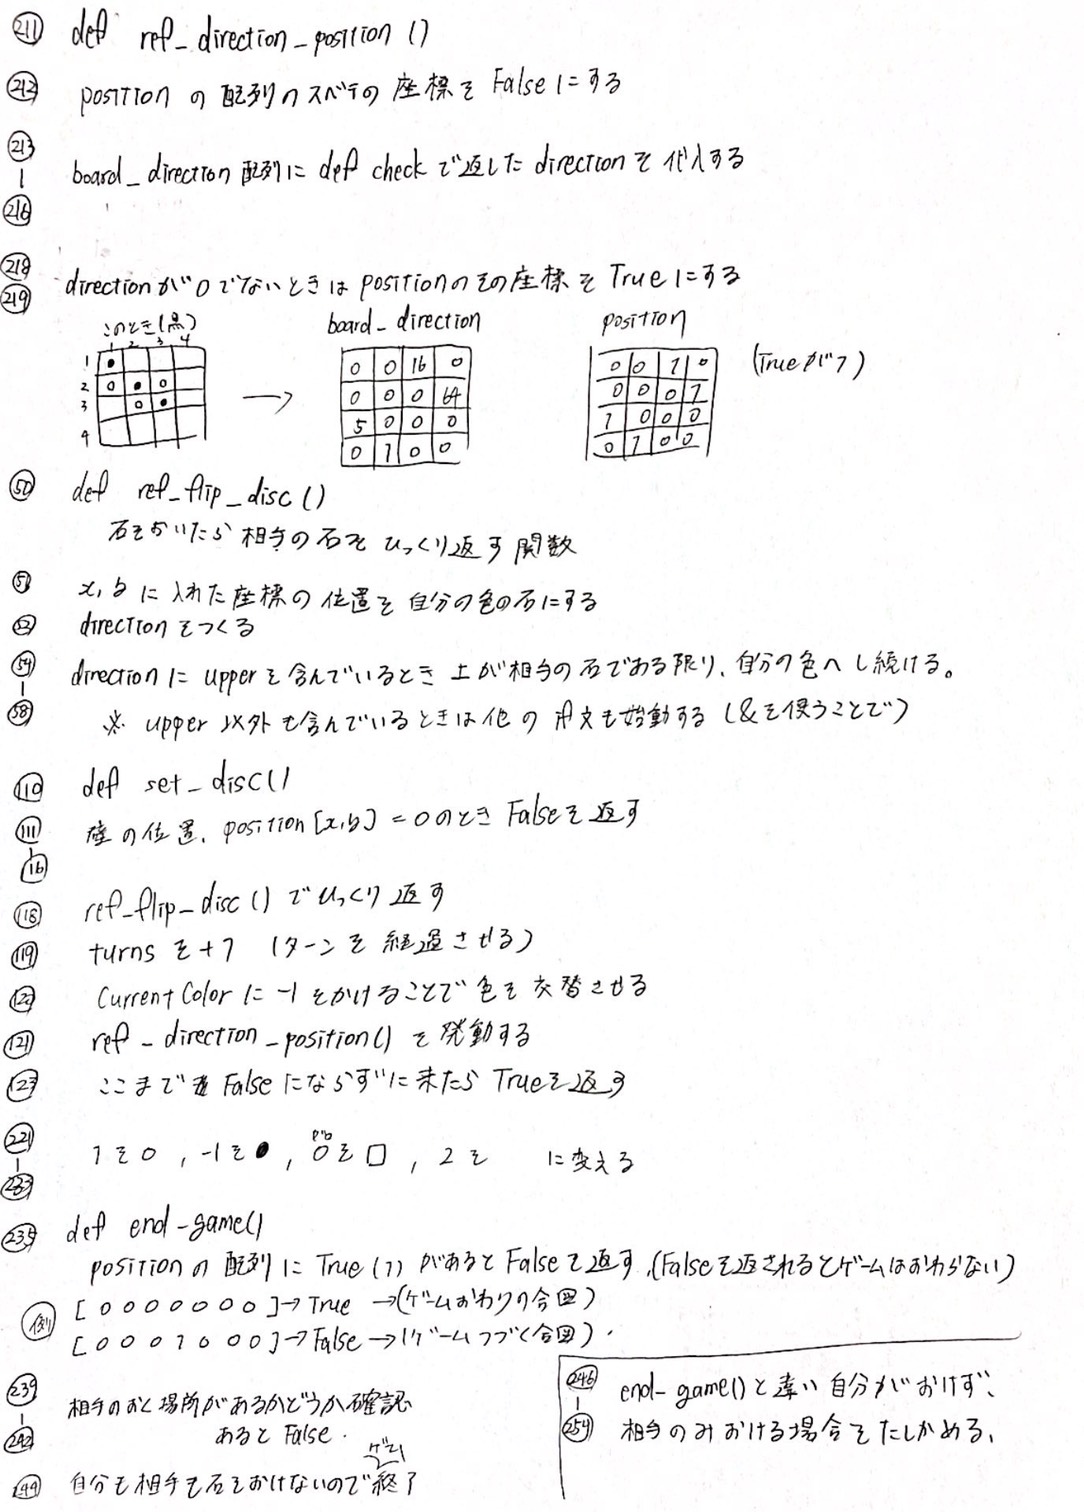 211 def ref_direction_position ()
212 positionの配列のスベテの座標をFalseにする
213
|
216 board_direction配列にdef checkで返したdirectionを代入する
218
219 directionが0でないときはpositionのその座標をTrueにする
このとき(黒) board_direction position
1 2 3 4
1 ●
2 ○ ● ○
3 ○ ●
4
→
0 0 16 0
0 0 0 64
5 0 0 0
0 1 0 0
0 0 1 0
0 0 0 1
1 0 0 0
0 1 0 0
(Trueが1)
50 def ref_flip_disc ()
石をおいたら相手の石をひっくり返す関数
51 x,yに入れた座標の位置を自分の色の石にする
52 directionをつくる
54
|
58 directionにupperを含んでいるとき上が相手の石である限り、自分の色へし続ける。
※ upper以外も含んでいるときは他のif文も始動する(&を使うことで)
110 def set_disc()
111
|
116 壁の位置、position[x,y]=0のときFalseを返す
118 ref_flip_disc()でひっくり返す
119 turnsを+1 (ターンを経過させる)
120 Current Colorに-1をかけることで色を交替させる
121 ref_direction_position()を発動する
123 ここまでFalseにならずに来たらTrueを返す
221
|
233 1を○, -1を●, 0を□, 2を に変える
235 def end-game()
positionの配列にTrue(1)があるとFalseを返す(Falseを返されるとゲームはおわらない)
例 [0 0 0 0 0 0 0]→True →(ゲームおわりの合図)
[0 0 0 1 0 0 0]→False→(ゲームつづく合図).
239
|
242 相手のおく場所があるかどうか確認
あるとFalse.
244 自分も相手も石をおけないので終了
ゲーム
246
|
254 end-game()と違い自分がおけず、
相手のみおける場合をたしかめる、